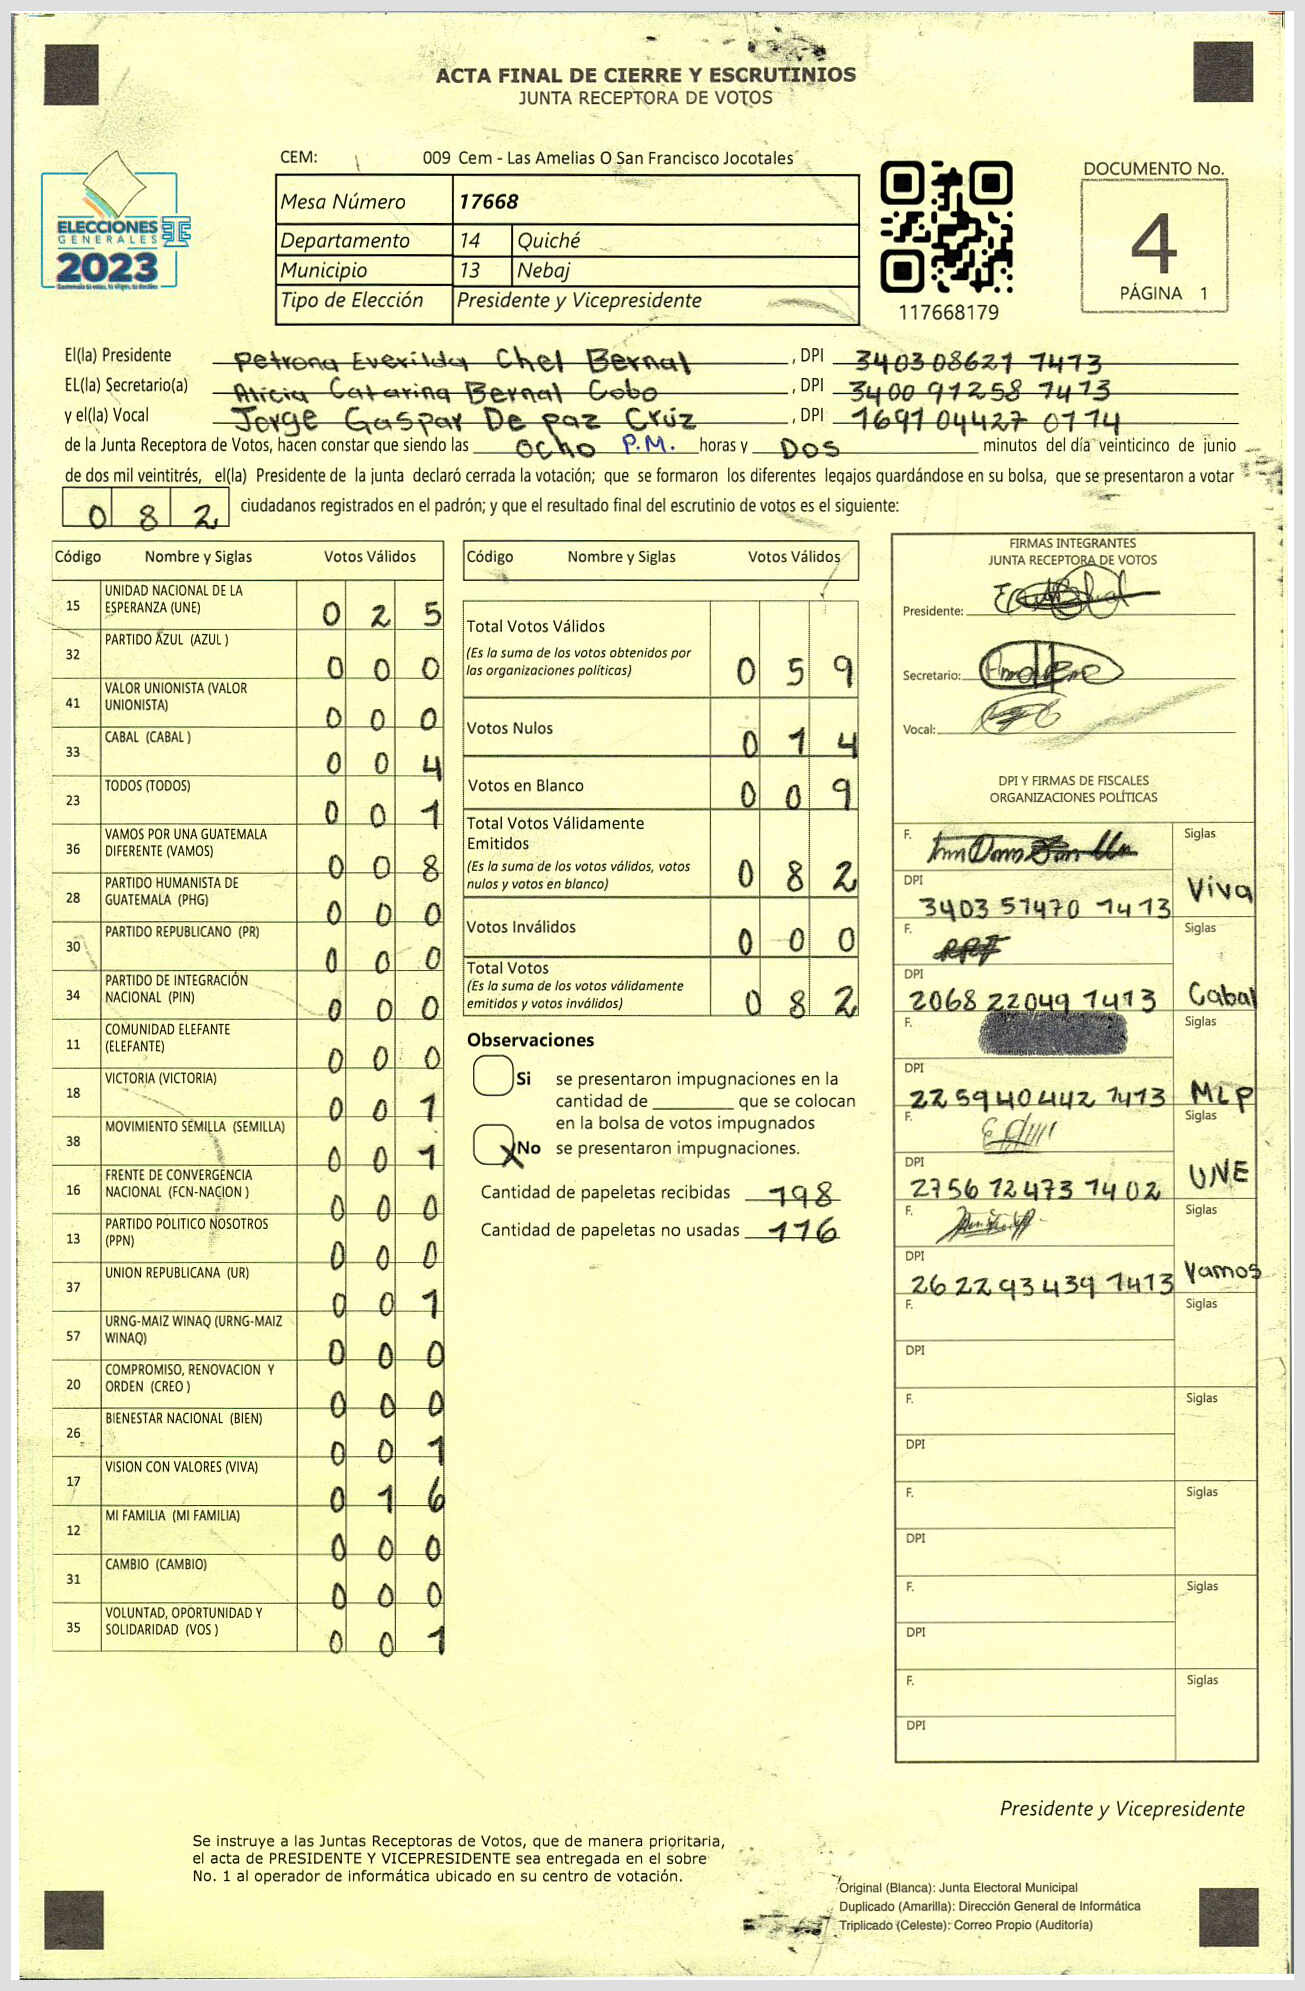 ACTA FINAL DE CIERRE Y ESCRUTINIOS
JUNTA RECEPTORA DE VOTOS
CEM: 009 Cem - Las Amelias O San Francisco Jocotales
DOCUMENTO No.
4
PÁGINA 1
ELECCIONES
GENERALES
2023
Mesa Número 17668
Departamento 14 Quiché
Municipio 13 Nebaj
Tipo de Elección Presidente y Vicepresidente
117668179
El(la) Presidente Petrona Everilda Chel Bernal , DPI 340308621 1413
EL(la) Secretario(a) Alicia Catarina Bernal Cobo , DPI 3400 91258 1413
y el(la) Vocal Jorge Gaspar De paz Cruz , DPI 1691 04427 0114
de la Junta Receptora de Votos, hacen constar que siendo las Ocho P.M. horas y Dos minutos del día veinticinco de junio
de dos mil veintitrés, el(la) Presidente de la junta declaró cerrada la votación; que se formaron los diferentes legajos guardándose en su bolsa, que se presentaron a votar
0 8 2 ciudadanos registrados en el padrón; y que el resultado final del escrutinio de votos es el siguiente:
Código Nombre y Siglas Votos Válidos
15 UNIDAD NACIONAL DE LA ESPERANZA (UNE) 0 2 5
32 PARTIDO AZUL (AZUL ) 0 0 0
41 VALOR UNIONISTA (VALOR UNIONISTA) 0 0 0
33 CABAL (CABAL ) 0 0 4
23 TODOS (TODOS) 0 0 1
36 VAMOS POR UNA GUATEMALA DIFERENTE (VAMOS) 0 0 8
28 PARTIDO HUMANISTA DE GUATEMALA (PHG) 0 0 0
30 PARTIDO REPUBLICANO (PR) 0 0 0
34 PARTIDO DE INTEGRACIÓN NACIONAL (PIN) 0 0 0
11 COMUNIDAD ELEFANTE (ELEFANTE) 0 0 0
18 VICTORIA (VICTORIA) 0 0 1
38 MOVIMIENTO SEMILLA (SEMILLA) 0 0 1
16 FRENTE DE CONVERGENCIA NACIONAL (FCN-NACION ) 0 0 0
13 PARTIDO POLITICO NOSOTROS (PPN) 0 0 0
37 UNION REPUBLICANA (UR) 0 0 1
57 URNG-MAIZ WINAQ (URNG-MAIZ WINAQ) 0 0 0
20 COMPROMISO, RENOVACION Y ORDEN (CREO ) 0 0 0
26 BIENESTAR NACIONAL (BIEN) 0 0 1
17 VISION CON VALORES (VIVA) 0 1 6
12 MI FAMILIA (MI FAMILIA) 0 0 0
31 CAMBIO (CAMBIO) 0 0 0
35 VOLUNTAD, OPORTUNIDAD Y SOLIDARIDAD (VOS ) 0 0 1
Código Nombre y Siglas Votos Válidos
Total Votos Válidos 0 5 9
(Es la suma de los votos obtenidos por
las organizaciones políticas)
Votos Nulos 0 1 4
Votos en Blanco 0 0 9
Total Votos Válidamente
Emitidos 0 8 2
(Es la suma de los votos válidos, votos
nulos y votos en blanco)
Votos Inválidos 0 0 0
Total Votos 0 8 2
(Es la suma de los votos válidamente
emitidos y votos inválidos)
Observaciones
Si se presentaron impugnaciones en la
cantidad de ________ que se colocan
en la bolsa de votos impugnados
X No se presentaron impugnaciones.
Cantidad de papeletas recibidas 198
Cantidad de papeletas no usadas 116
FIRMAS INTEGRANTES
JUNTA RECEPTORA DE VOTOS
Presidente:
Secretario:
Vocal:
DPI Y FIRMAS DE FISCALES
ORGANIZACIONES POLÍTICAS
F. Siglas
DPI 3403 51470 1413 Viva
F. Siglas
DPI 2068 22049 1413 Cabal
F. Siglas
DPI 2259 40442 1413 MLP
F. Siglas
DPI 2756 12473 1402 UNE
F. Siglas
DPI 2622 93439 1413 Vamos
F. Siglas
DPI
F. Siglas
DPI
F. Siglas
DPI
F. Siglas
DPI
F. Siglas
DPI
Presidente y Vicepresidente
Se instruye a las Juntas Receptoras de Votos, que de manera prioritaria,
el acta de PRESIDENTE Y VICEPRESIDENTE sea entregada en el sobre
No. 1 al operador de informática ubicado en su centro de votación.
Original (Blanca): Junta Electoral Municipal
Duplicado (Amarilla): Dirección General de Informática
Triplicado (Celeste): Correo Propio (Auditoría)